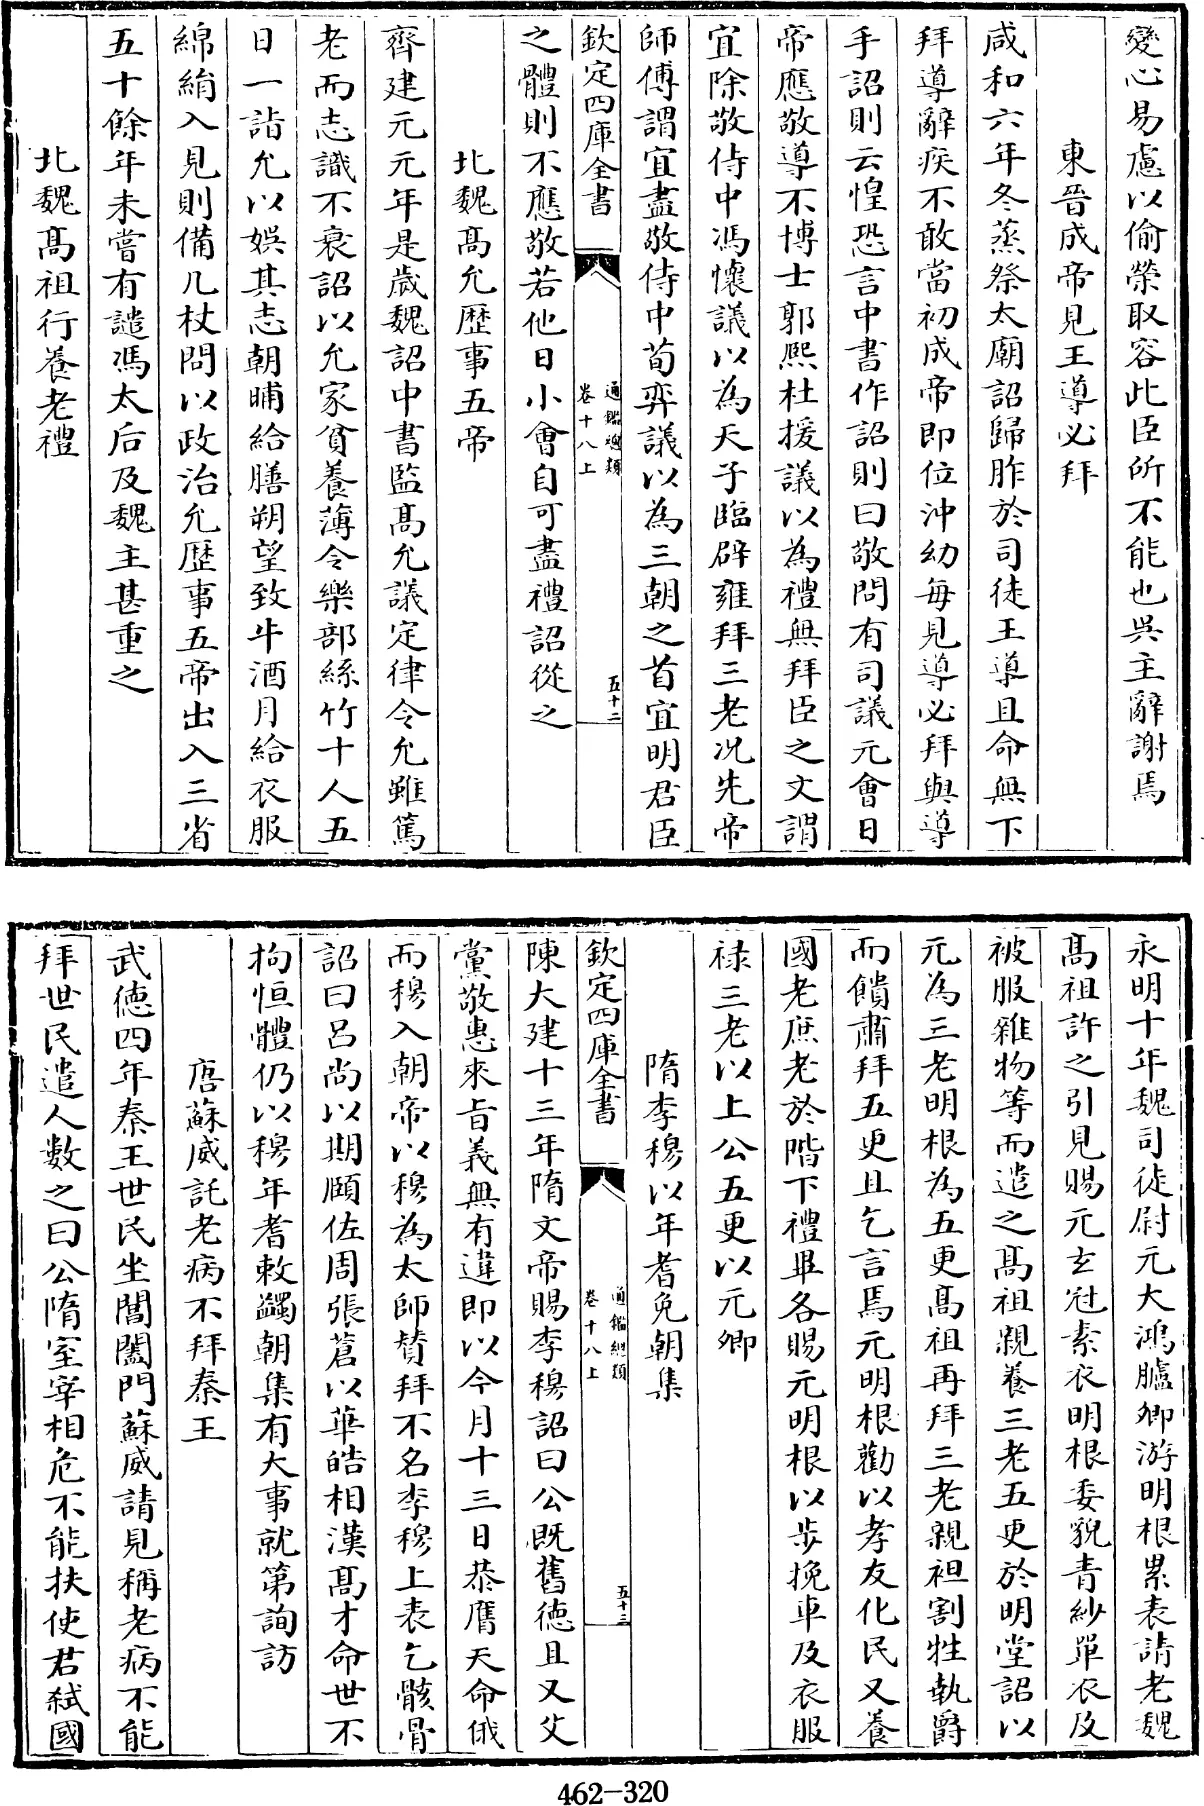 變心易慮以偷榮取容此臣所不能也吳主辭謝焉
東晉成帝見王導必拜
咸和六年冬蒸祭太廟詔歸胙於司徒王導且命無下
拜導辭疾不敢當初成帝即位沖幼每見導必拜與導
手詔則云惶恐言中書作詔則曰敬問有司議元會日
帝應敬導不博士郭熙杜援議以為禮無拜臣之文謂
宜除敬侍中馮懷議以為天子臨辟雍拜三老況先帝
師傅謂宜盡敬侍中荀弈議以為三朝之首宜明君臣
欽定四庫全書
通鑑總類
卷十八上
五十二
之體則不應敬若他日小會自可盡禮詔從之
北魏高允歷事五帝
齊建元元年是歲魏詔中書監高允議定律令允雖篤
老而志識不衰詔以允家貧養薄令樂部絲竹十人五
日一詣允以娛其志朝晡給膳朔望致牛酒月給衣服
綿絹入見則備几杖問以政治允歷事五帝出入三省
五十餘年未嘗有譴馮太后及魏主甚重之
北魏高祖行養老禮
永明十年魏司徒尉元大鴻臚卿游明根累表請老魏
高祖許之引見賜元玄冠素衣明根委貌青紗單衣及
被服雜物等而遣之高祖親養三老五更於明堂詔以
元為三老明根為五更高祖再拜三老親袒割牲執爵
而饋肅拜五更且乞言焉元明根勸以孝友化民又養
國老庶老於階下禮畢各賜元明根以步挽車及衣服
祿三老以上公五更以元卿
隋李穆以年耆免朝集
欽定四庫全書
通鑑總類
卷十八上
五十三
陳大建十三年隋文帝賜李穆詔曰公既舊德且又父
黨敬惠來旨義無有違即以今月十三日恭膺天命俄
而穆入朝帝以穆為太師贊拜不名李穆上表乞骸骨
詔曰呂尚以期頤佐周張蒼以華皓相漢高才命世不
拘恒體仍以穆年耆敕蠲朝集有大事就第詢訪
唐蘇威託老病不拜秦王
武德四年秦王世民坐閶闔門蘇威請見稱老病不能
拜世民遣人數之曰公隋室宰相危不能扶使君弒國
462-320